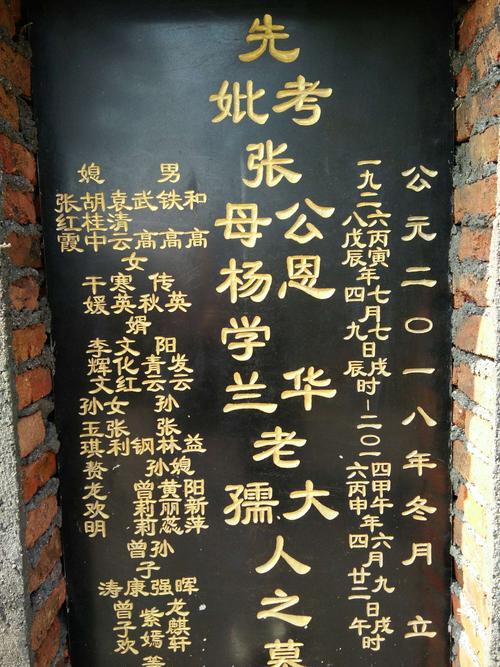 公元二〇一八年冬月 立
一九二六丙寅年七月七日戌时—二〇一四甲午年六月九日戌时
八戊辰四九辰六丙申四廿二午
先
考妣
张
公恩华
母杨学兰
老
大孺
人之墓
男 媳
和铁武袁胡张
清桂红
高高高云中霞
女
传寒干
英秋英媛
婿
阳文李
发青化辉
云云红文
孙 孙女
张张玉
益林钢利琪
赘龙欢明
孙媳
阳黄曾
新丽莉
萍蕊莉
曾孙
子
晖强康涛
龙麒轩
紫嫣
曾子欢